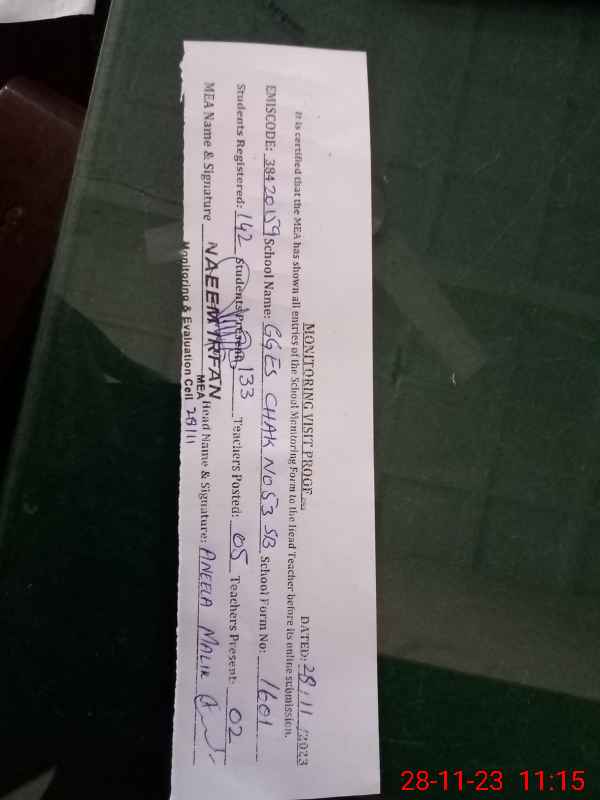 MONITORING VISIT PROOF
DATED: 28/11/2023
It is certified that the MEA has shown all entries of the School Monitoring Form to the Head Teacher before its online submission.
EMISCODE: 38420159 School Name: GGES CHAK NO 53 SB School Form No: 1601
Students Registered: 142 Students Present: 133 Teachers Posted: 05 Teachers Present: 02
MEA Name & Signature NAEEM IRFAN Head Name & Signature: ANEELA MALIK
MEA
Monitoring & Evaluation Cell 28/11
28-11-23 11:15